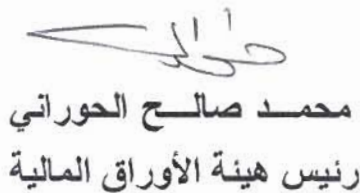 محمـــد صالـــح الحوراني
رئيس هيئة الأوراق المالية